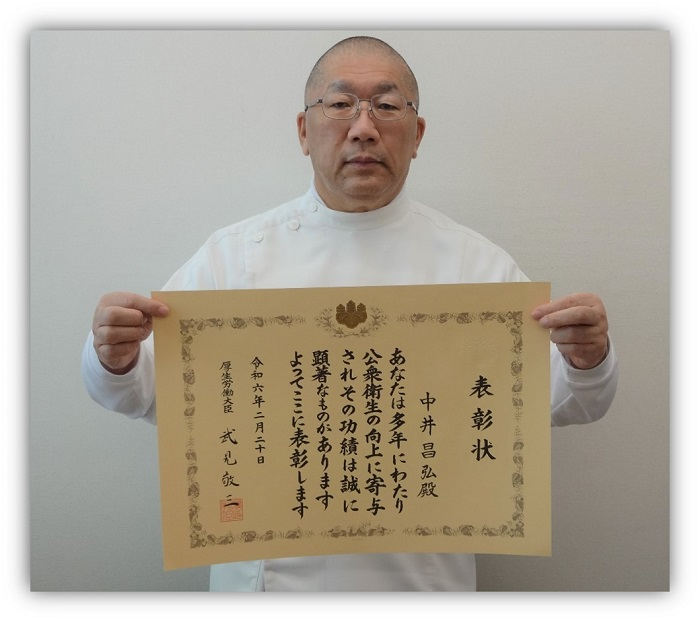 表彰状
中井昌弘殿
あなたは多年にわたり
公衆衛生の向上に寄与
されその功績は誠に
顕著なものがあります
よってここに表彰します
令和六年二月二十日
厚生労働大臣 武見敬三